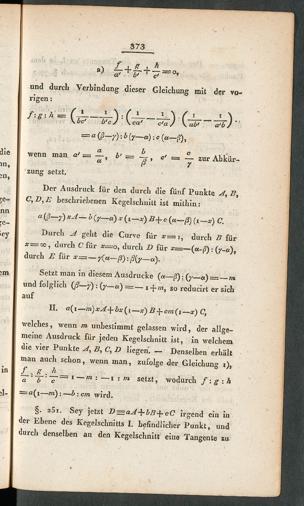 373
2) f/a' + g/b' + h/c' = 0,
und durch Verbindung dieser Gleichung mit der vo-
rigen:
f : g : h = (1/bc' − 1/b'c) : (1/ca' − 1/c'a) : (1/ab' − 1/a'b) . .
= a (β−γ) : b (γ−α) : c (α−β),
wenn man a' = a/α, b' = b/β, c' = c/γ zur Abkür-
zung setzt.
Der Ausdruck für den durch die fünf Punkte A, B,
C, D, E beschriebenen Kegelschnitt ist mithin:
a (β−γ) x A − b (γ−α) x (1−x) B + c (α−β) (1−x) C.
Durch A geht die Curve für x=1, durch B für
x=∞, durch C für x=0, durch D für x=−(α−β):(γ−α),
durch E für x=−γ(α−β):β(γ−α).
Setzt man in diesem Ausdrucke (α−β):(γ−α)=−m
und folglich (β−γ):(γ−α)=−1+m, so reducirt er sich
auf
II. a(1−m)xA + bx(1−x) B + cm(1−x) C,
welches, wenn m unbestimmt gelassen wird, der allge-
meine Ausdruck für jeden Kegelschnitt ist, in welchem
die vier Punkte A, B, C, D liegen. — Denselben erhält
man auch schon, wenn man, zufolge der Gleichung 1),
f/a : g/b : h/c = 1−m : −1 : m setzt, wodurch f : g : h
= a(1−m) : −b : cm wird.
§. 251. Sey jetzt D≡aA+bB+cC irgend ein in
der Ebene des Kegelschnitts I. befindlicher Punkt, und
durch denselben an den Kegelschnitt eine Tangente zu